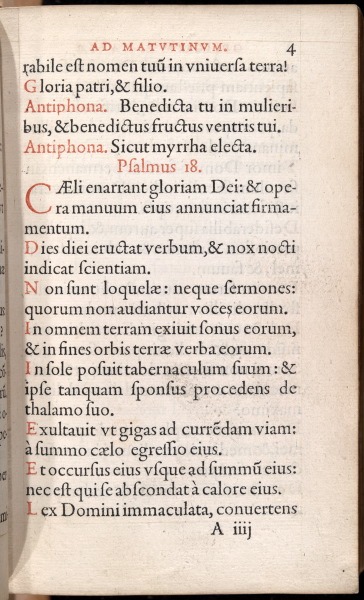 AD MATVTINVM. 4
rabile eſt nomen tuũ in vniuerſa terra!
Gloria patri, & filio.
Antiphona. Benedicta tu in mulieri-
bus, & benedictus fructus ventris tui.
Antiphona. Sicut myrrha electa.
Pſalmus 18.
CÆli enarrant gloriam Dei: & ope-
ra manuum eius annunciat firma-
mentum.
Dies diei eructat verbum, & nox nocti
indicat ſcientiam.
Non ſunt loquelæ: neque ſermones:
quorum non audiantur voces eorum.
In omnem terram exiuit ſonus eorum,
& in fines orbis terræ verba eorum.
In ſole poſuit tabernaculum ſuum: &
ipſe tanquam ſponſus procedens de
thalamo ſuo.
Exultauit vt gigas ad currẽdam viam:
à ſummo cælo egreſſio eius.
Et occurſus eius vſque ad ſummũ eius:
nec eſt qui ſe abſcondat à calore eius.
Lex Domini immaculata, conuertens
A iiij